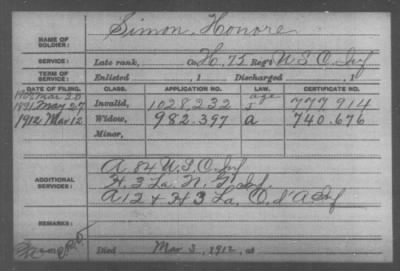 NAME OF SOLDIER: Simon, Honore
SERVICE: Late rank, Co. H, 75 Reg't U S C Inf
TERM OF SERVICE: Enlisted , 1 Discharged , 1
DATE OF FILING. CLASS. APPLICATION NO. LAW. CERTIFICATE NO.
Mar 20 age
1891 May 27 Invalid, 1028232 S 777914
1912 Mar 12 Widow, 982.397 a 740.676
Minor,
ADDITIONAL SERVICES: A. 84 U.S.C. Inf
H. 3 La. N. G. Inf.
A 12 & H 3 La. C. d'A Inf
REMARKS:
Died Mar 3, 1912, at